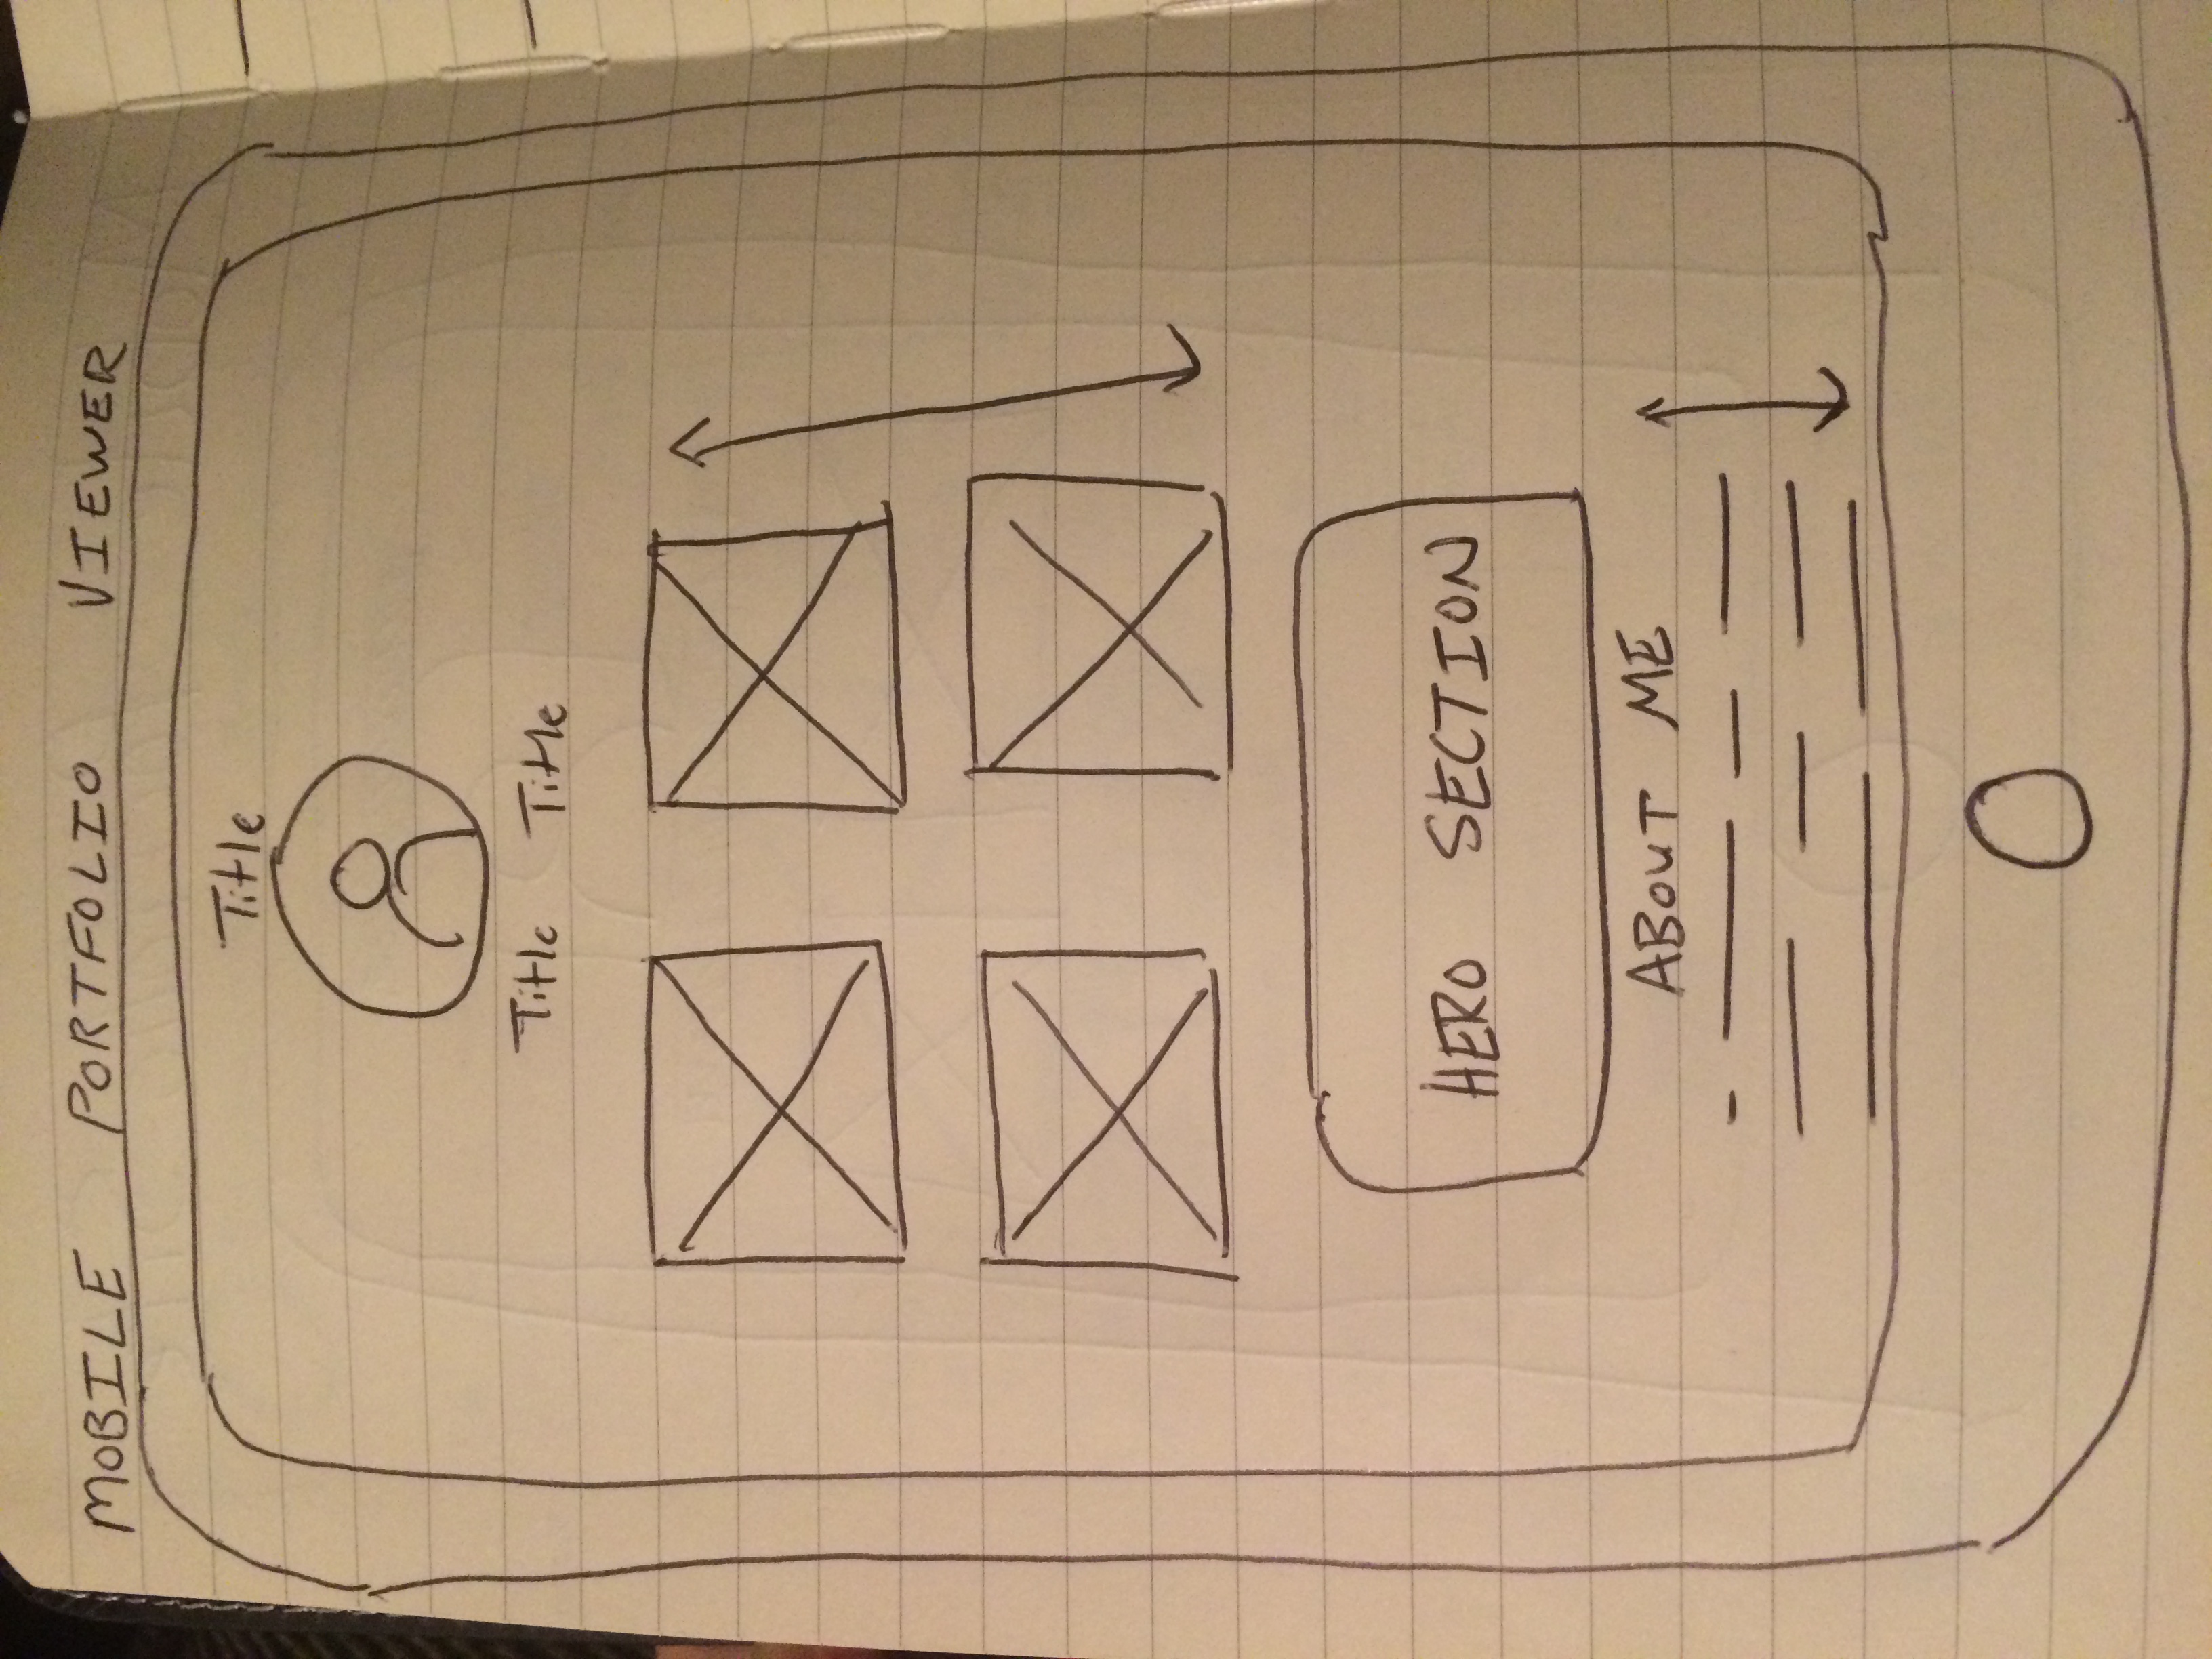 MOBILE PORTFOLIO VIEWER
Title
Title Title
HERO SECTION
ABOUT ME